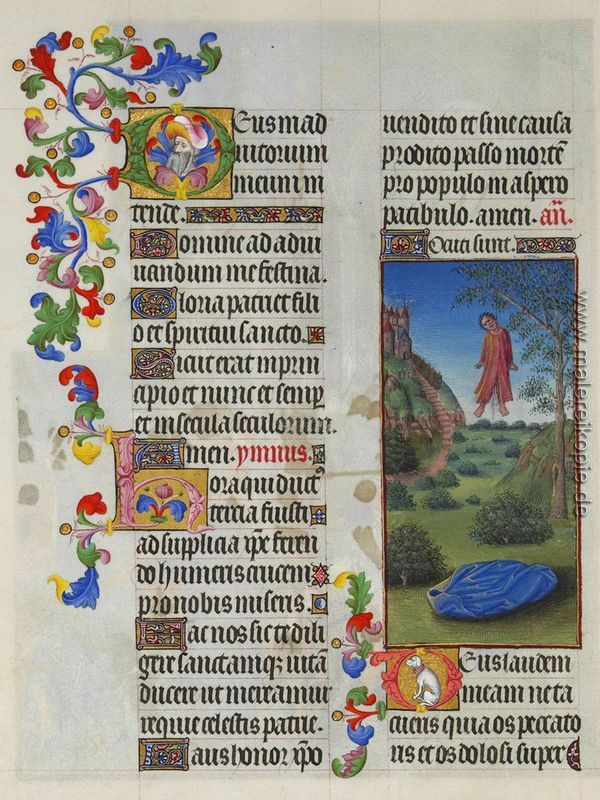 Deus in ad
iutorium
meum in
tende.
Domine ad adiu
uandum me festina.
Gloria patri et fili
o et spiritui sancto.
Sicut erat in prin
cipio et nunc et semp̱
et in secula seculorum.
Amen. ymnus.
Hora qui ductꝰ
tercia fuisti
ad supplicia xp̄e feren
do humeris crucem
pro nobis miseris.
Hac nos sic te dili
gere sanctamqꝫ uitā
ducere ut mereamur
requie celestis patrie.
Laus honor xp̄o
uendito et sine causa
prodito passo mortē
pro populo in aspero
patibulo. amen. añ.
Locuti sunt.
Deus laudem
meam ne ta
cueris quia os peccato
ris et os dolosi super
www.malereikopie.de